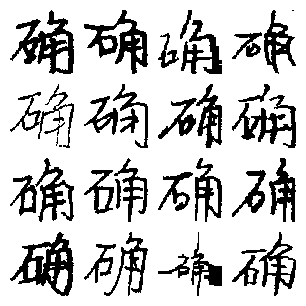 确确确确
确确确确
确确确确
确确确确